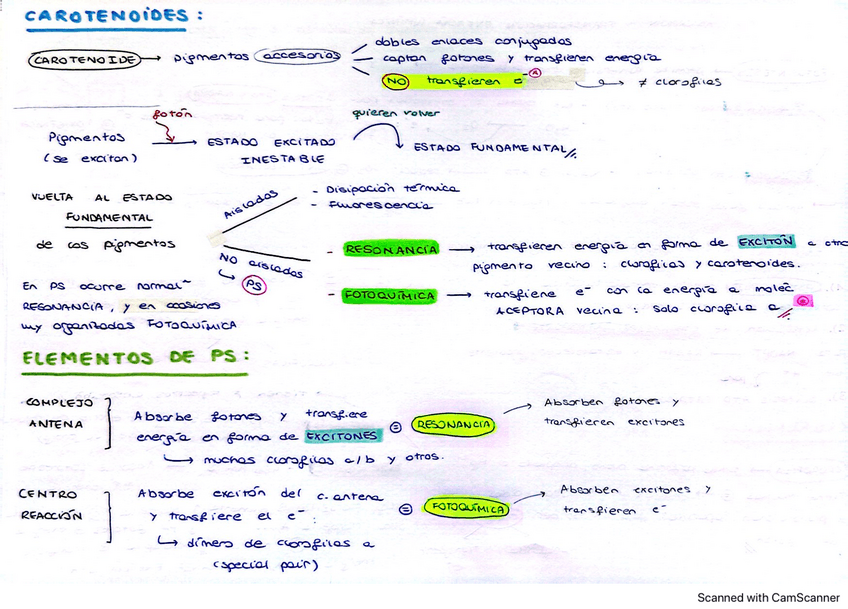 CAROTENOIDES :
CAROTENOIDE → pigmentos accesorios
dobles enlaces conjugados
captan fotones y transfieren energía
NO transfieren e⁻
→ ≠ clorofilas
fotón
quieren volver
Pigmentos → ESTADO EXCITADO
ESTADO FUNDAMENTAL
(se excitan)
INESTABLE
VUELTA AL ESTADO
FUNDAMENTAL
de los pigmentos
Aislados
- Disipación térmica
- Fluorescencia
NO aislados
↳ PS
- RESONANCIA → transfieren energía en forma de EXCITÓN a otro
pigmento vecino : clorofilas y carotenoides.
- FOTOQUÍMICA → transfiere e⁻ con la energía a molec
ACEPTORA vecina : solo clorofila a
En PS ocurre normal~
RESONANCIA, y en ocasiones
muy organizadas FOTOQUÍMICA
ELEMENTOS DE PS :
COMPLEJO
ANTENA
Absorbe fotones y transfiere
energía en forma de EXCITONES
↳ muchas clorofilas a/b y otros.
= RESONANCIA
Absorben fotones y
transfieren excitones
CENTRO
REACCIÓN
Absorbe excitón del c. antena
y transfiere el e⁻ :
↳ dímero de clorofilas a
(special pair)
= FOTOQUÍMICA
Absorben excitones y
transfieren e⁻
Scanned with CamScanner